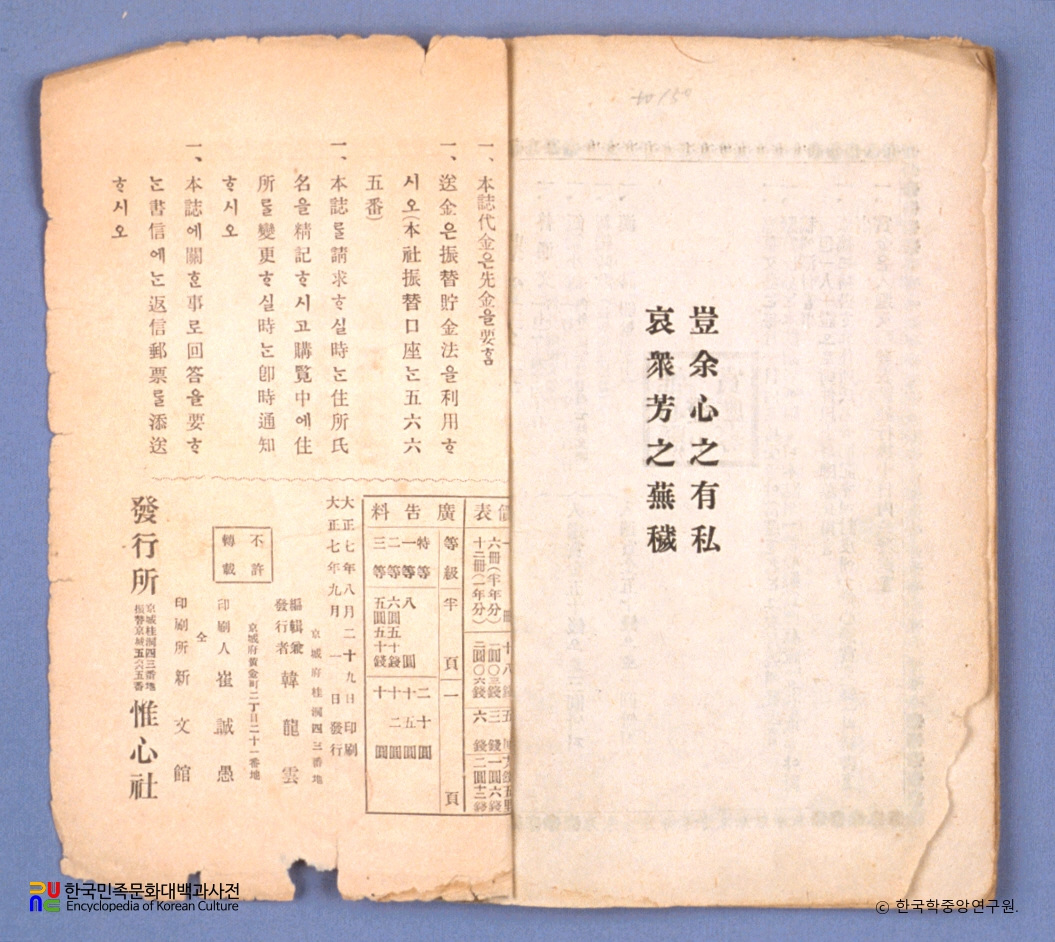 豈余心之有私
哀衆芳之蕪穢
一、本誌代金은先金을要ᄒᆞᆷ
一、送金은振替貯金法을利用ᄒᆞ
시오(本社振替口座ᄂᆞᆫ五六六
五番)
一、本誌ᄅᆞᆯ請求ᄒᆞ실時ᄂᆞᆫ住所氏
名을精記ᄒᆞ시고購覽中에住
所ᄅᆞᆯ變更ᄒᆞ실時ᄂᆞᆫ卽時通知
ᄒᆞ시오
一、本誌에關ᄒᆞᆫ事로回答을要ᄒᆞ
ᄂᆞᆫ書信에ᄂᆞᆫ返信郵票ᄅᆞᆯ添送
ᄒᆞ시오
價表
六冊(半年分)
十二冊(一年分)
廣告料
等級 半頁 一頁
特等
一等
二等
三等
大正七年八月二十九日印刷
大正七年九月一日發行
京城府桂洞四三番地
編輯兼
發行者 韓龍雲
京城府黃金町二丁目二十一番地
印刷人 崔誠愚
仝
印刷所 新文館
不許
轉載
發行所 惟心社
京城桂洞四三番地
振替京城五六六五番
한국민족문화대백과사전
Encyclopedia of Korean Culture
© 한국학중앙연구원.